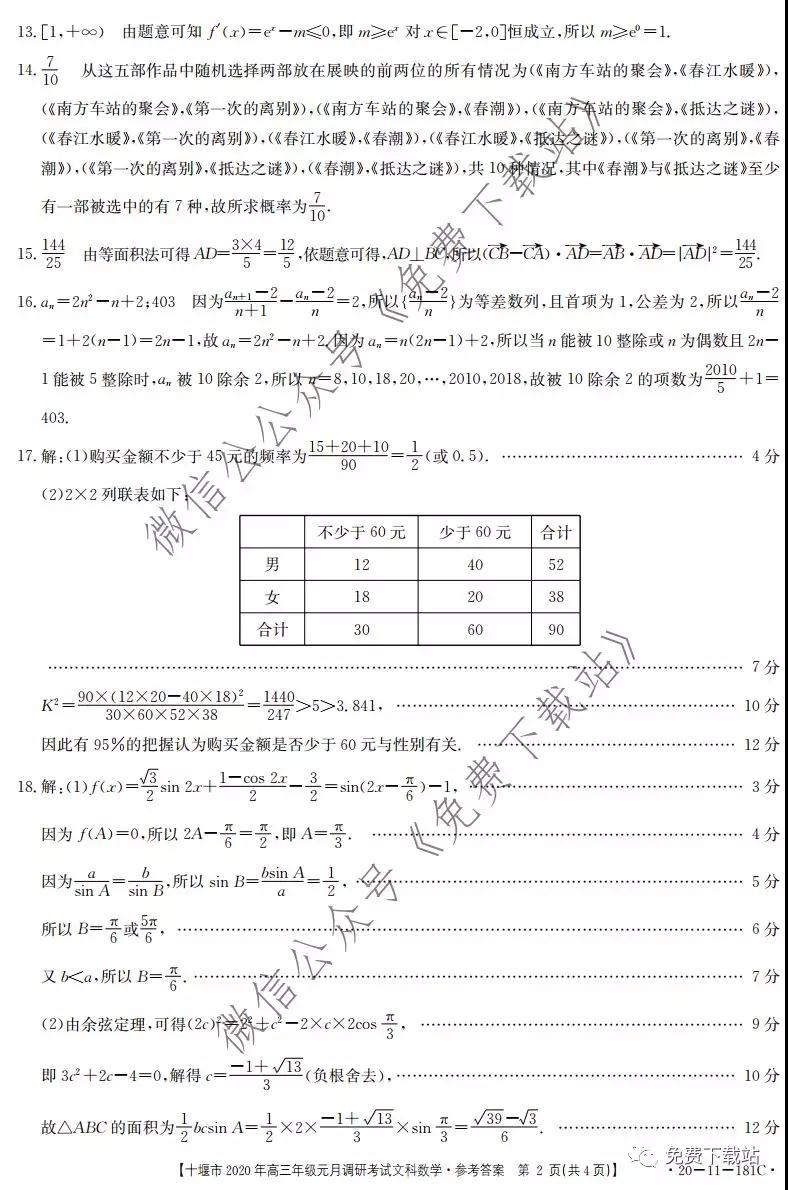 13.[1,+∞) 由题意可知 f′(x)=eˣ-m≤0,即 m≥eˣ 对 x∈[-2,0]恒成立,所以 m≥e⁰=1.
14. 7/10 从这五部作品中随机选择两部放在展映的前两位的所有情况为(《南方车站的聚会》,《春江水暖》),
(《南方车站的聚会》,《第一次的离别》),(《南方车站的聚会》,《春潮》),(《南方车站的聚会》,《抵达之谜》),
(《春江水暖》,《第一次的离别》),(《春江水暖》,《春潮》),(《春江水暖》,《抵达之谜》),(《第一次的离别》,《春
潮》),(《第一次的离别》,《抵达之谜》),(《春潮》,《抵达之谜》),共 10 种情况,其中《春潮》与《抵达之谜》至少
有一部被选中的有 7 种,故所求概率为 7/10.
15. 144/25 由等面积法可得 AD=3×4/5=12/5,依题意可得,AD⊥BC,所以(CB→-CA→)·AD→=AB→·AD→=|AD→|²=144/25.
16. aₙ=2n²-n+2;403 因为 (aₙ₊₁-2)/(n+1)-(aₙ-2)/n=2,所以{(aₙ-2)/n}为等差数列,且首项为 1,公差为 2,所以(aₙ-2)/n
=1+2(n-1)=2n-1,故 aₙ=2n²-n+2.因为 aₙ=n(2n-1)+2,所以当 n 能被 10 整除或 n 为偶数且 2n-
1 能被 5 整除时,aₙ 被 10 除余 2,所以 n=8,10,18,20,…,2010,2018,故被 10 除余 2 的项数为 2010/5+1=
403.
17. 解:(1)购买金额不少于 45 元的频率为 (15+20+10)/90=1/2(或 0.5). …… 4 分
(2)2×2 列联表如下:
不少于 60 元 少于 60 元 合计
男 12 40 52
女 18 20 38
合计 30 60 90
…… 7 分
K²=90×(12×20-40×18)²/(30×60×52×38)=1440/247>5>3.841, …… 10 分
因此有 95%的把握认为购买金额是否少于 60 元与性别有关. …… 12 分
18. 解:(1)f(x)=√3/2 sin 2x+(1-cos 2x)/2-3/2=sin(2x-π/6)-1, …… 3 分
因为 f(A)=0,所以 2A-π/6=π/2,即 A=π/3. …… 4 分
因为 a/sin A=b/sin B,所以 sin B=bsin A/a=1/2, …… 5 分
所以 B=π/6 或 5π/6, …… 6 分
又 b<a,所以 B=π/6. …… 7 分
(2)由余弦定理,可得(2c)²=2²+c²-2×c×2cos π/3, …… 9 分
即 3c²+2c-4=0,解得 c=(-1+√13)/3(负根舍去), …… 10 分
故△ABC 的面积为 1/2 bcsin A=1/2×2×(-1+√13)/3×sin π/3=(√39-√3)/6. …… 12 分
【十堰市 2020 年高三年级元月调研考试文科数学·参考答案 第 2 页(共 4 页)】 ·20-11-181C·
免费下载站
微信公众号《免费下载站》
微信公众号《免费下载站》